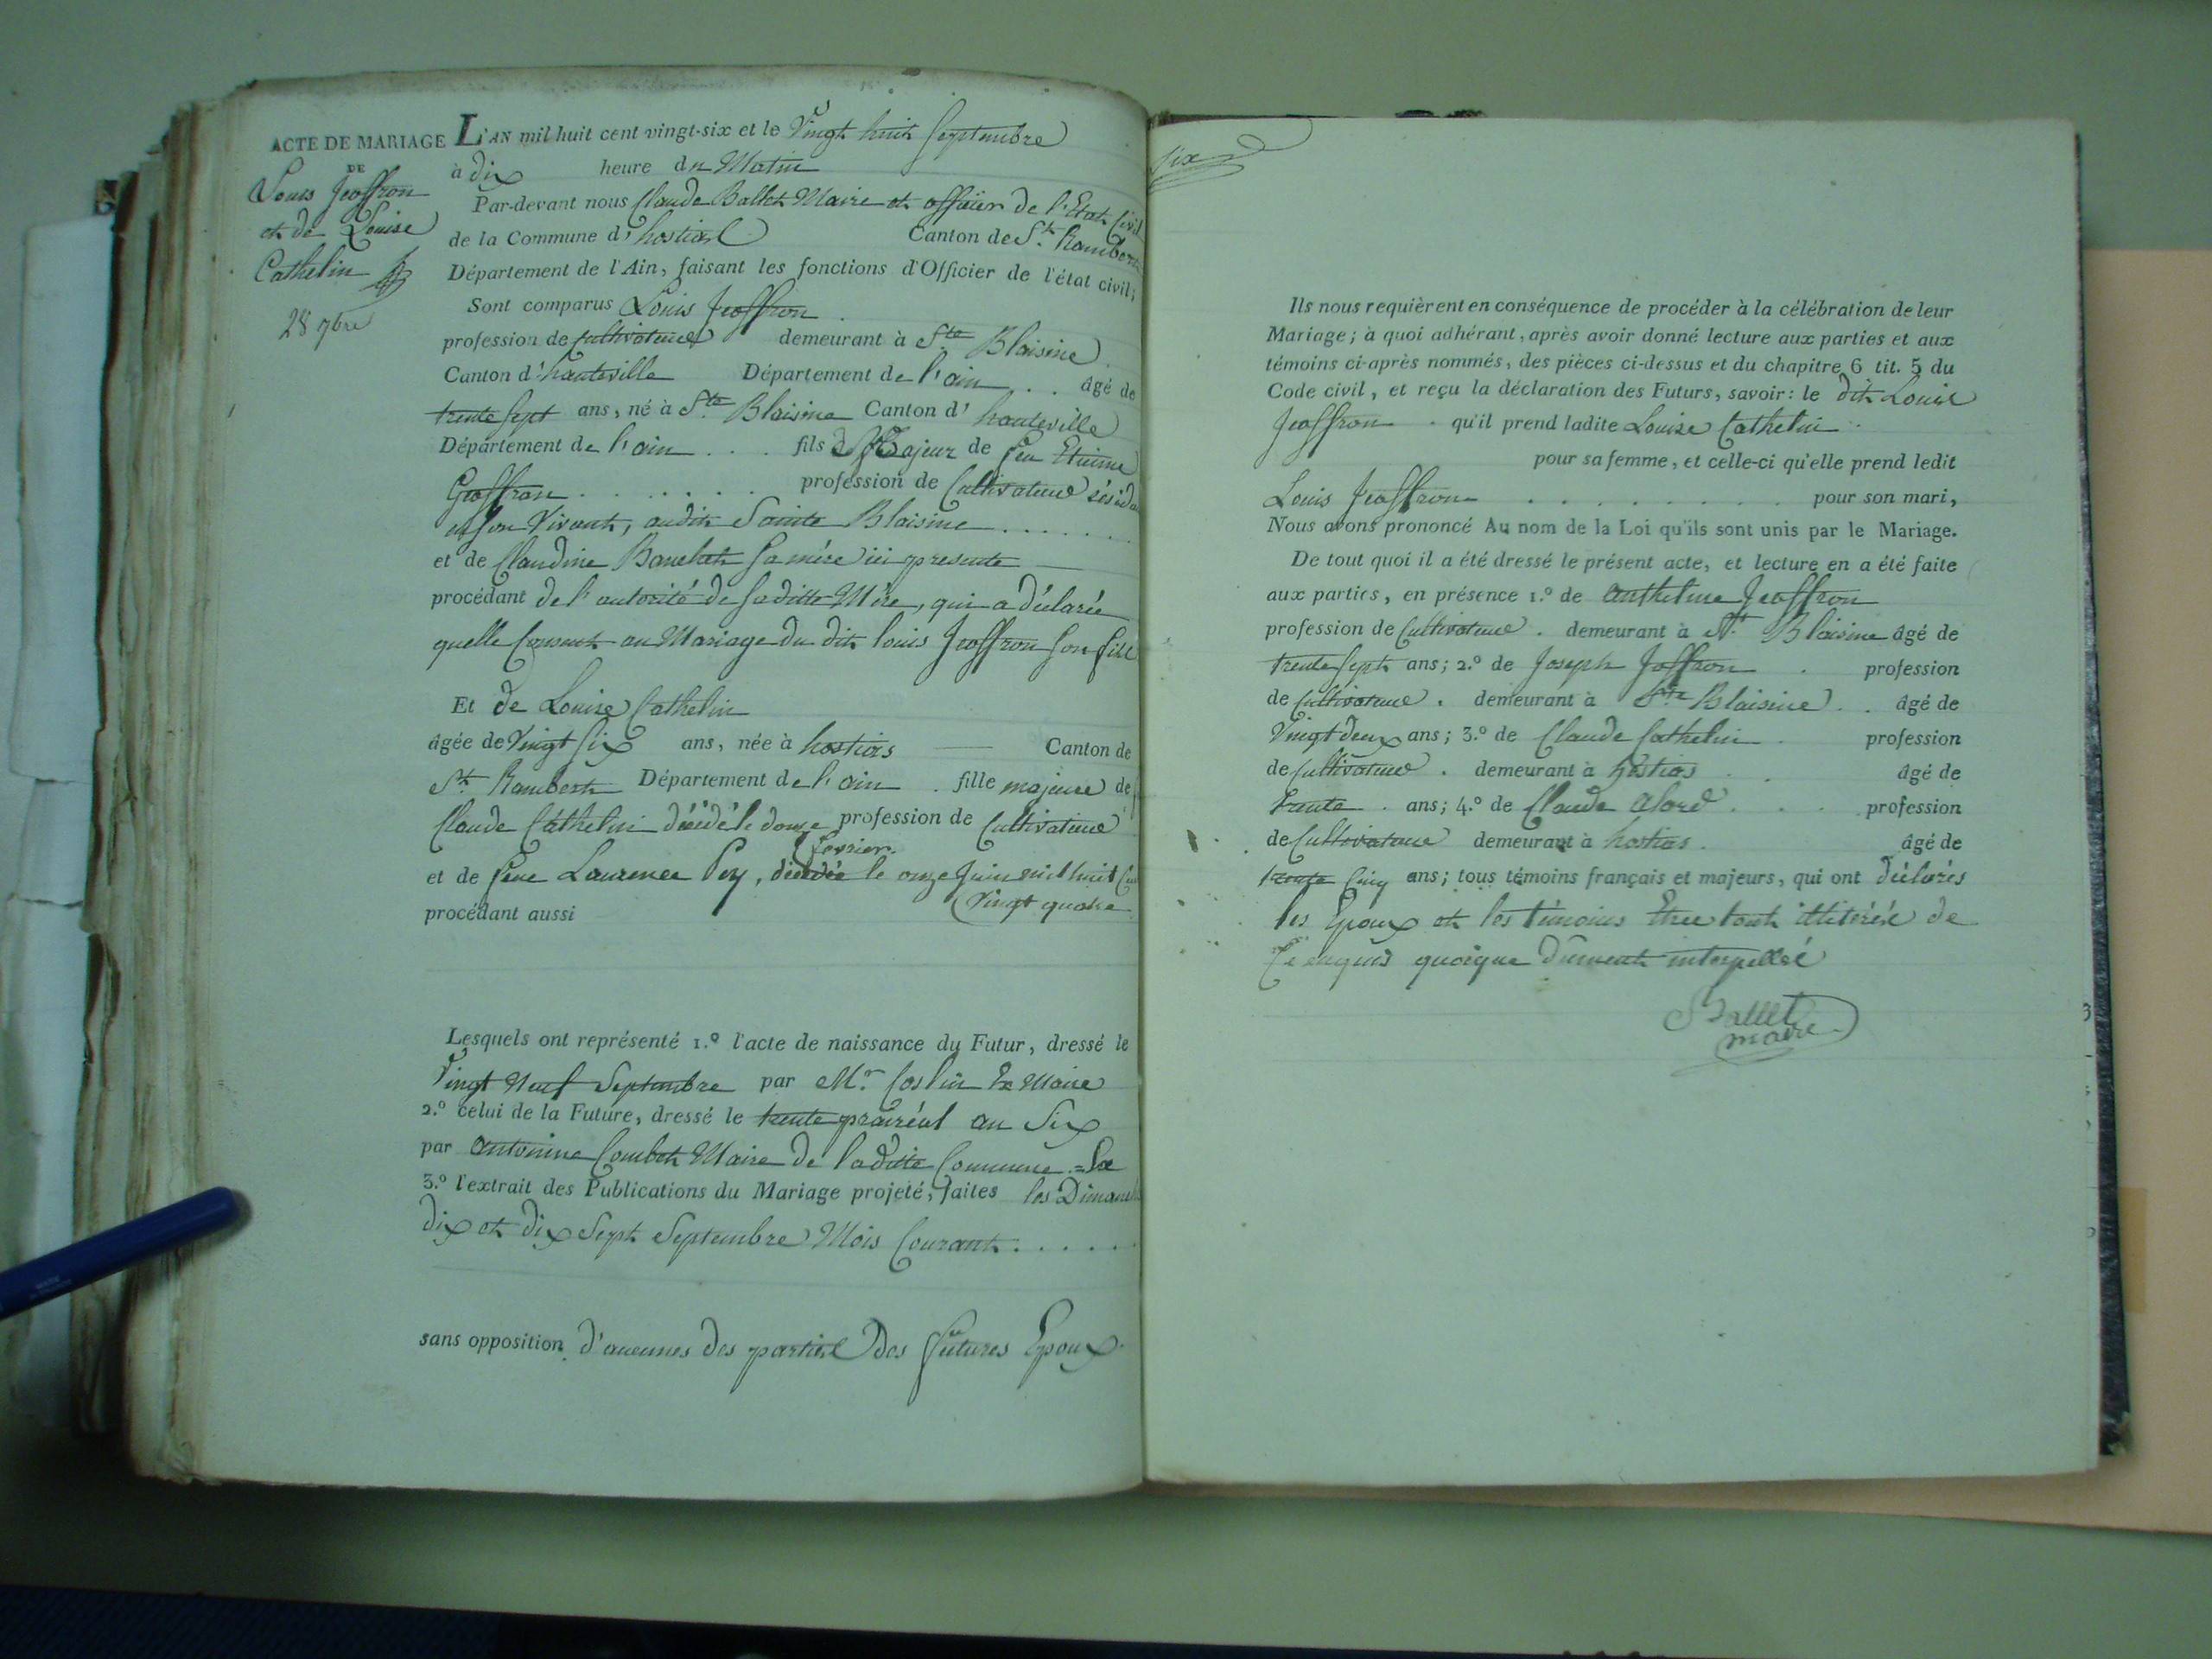 ACTE DE MARIAGE
DE
Louis Jeoffron
et de Louise
Cathelin
28 7bre
L'AN mil huit cent vingt-six et le Vingt huit Septembre
à dix heure du Matin
Par-devant nous Claude Ballet Maire et officier de l'Etat Civil
de la Commune d'hostias Canton de St. Rambert
Département de l'Ain, faisant les fonctions d'Officier de l'état civil;
Sont comparus Louis Jeoffron
profession de Cultivateur demeurant à Ste Blaisine
Canton d'hauteville Département de l'ain . . âgé de
trente sept ans, né à Ste Blaisine Canton d' hauteville
Département de l'ain . . . fils Majeur de feu Etienne
Geoffron . . . . . . . profession de Cultivateur
en son Vivant, audit Sainte Blaisine . . . . . . .
et de Claudine Bauchet sa mère ici presente
procédant de l'autorité de sa ditte Mère, qui a déclarée
quelle Consent au Mariage du dit louis Jeoffron son fils
Et de Louise Cathelin
âgée de Vingt Six ans, née à hostias Canton de
St. Rambert Département de l'ain . fille majeure de
Claude Cathelin décédé le douze profession de Cultivateur
fevrier
et de feue Laurence Pey, décédée le onze Juin mil huit Cent
Vingt quatre
procédant aussi
Lesquels ont représenté 1.º l'acte de naissance du Futur, dressé le
Vingt Neuf Septembre par Mr. Coslin Ex Maire
2.º celui de la Future, dressé le trente prairéal an Six
par antonine Combet Maire de laditte Commune
3.º l'extrait des Publications du Mariage projeté, faites les Dimanches
dix et dix Sept Septembre Mois Courant . . . . . .
sans opposition d'aucunes des parties des futures Epoux.
six
Ils nous requièrent en conséquence de procéder à la célébration de leur
Mariage; à quoi adhérant, après avoir donné lecture aux parties et aux
témoins ci-après nommés, des pièces ci-dessus et du chapitre 6 tit. 5 du
Code civil, et reçu la déclaration des Futurs, savoir: le dit Louis
Jeoffron . qu'il prend ladite Louise Cathelin .
pour sa femme, et celle-ci qu'elle prend ledit
Louis Jeoffron . . . . . . . . . pour son mari,
Nous avons prononcé Au nom de la Loi qu'ils sont unis par le Mariage.
De tout quoi il a été dressé le présent acte, et lecture en a été faite
aux parties, en présence 1.º de anthelme Jeoffron
profession de Cultivateur . demeurant à St. Blaisine âgé de
trente sept ans; 2.º de Joseph Joffron . profession
de Cultivateur . demeurant à Ste Blaisine . . âgé de
Vingt deux ans; 3.º de Claude Cathelin . profession
de Cultivateur . demeurant à hostias . . âgé de
trente . ans; 4.º de Claude alord . . . profession
de Cultivateur demeurant à hostias . âgé de
trente Cinq ans; tous témoins français et majeurs, qui ont déclarés
les Epoux et les témoins Etre tout illitérés de
Ce enquis quoique dûment interpellés
Ballet
maire